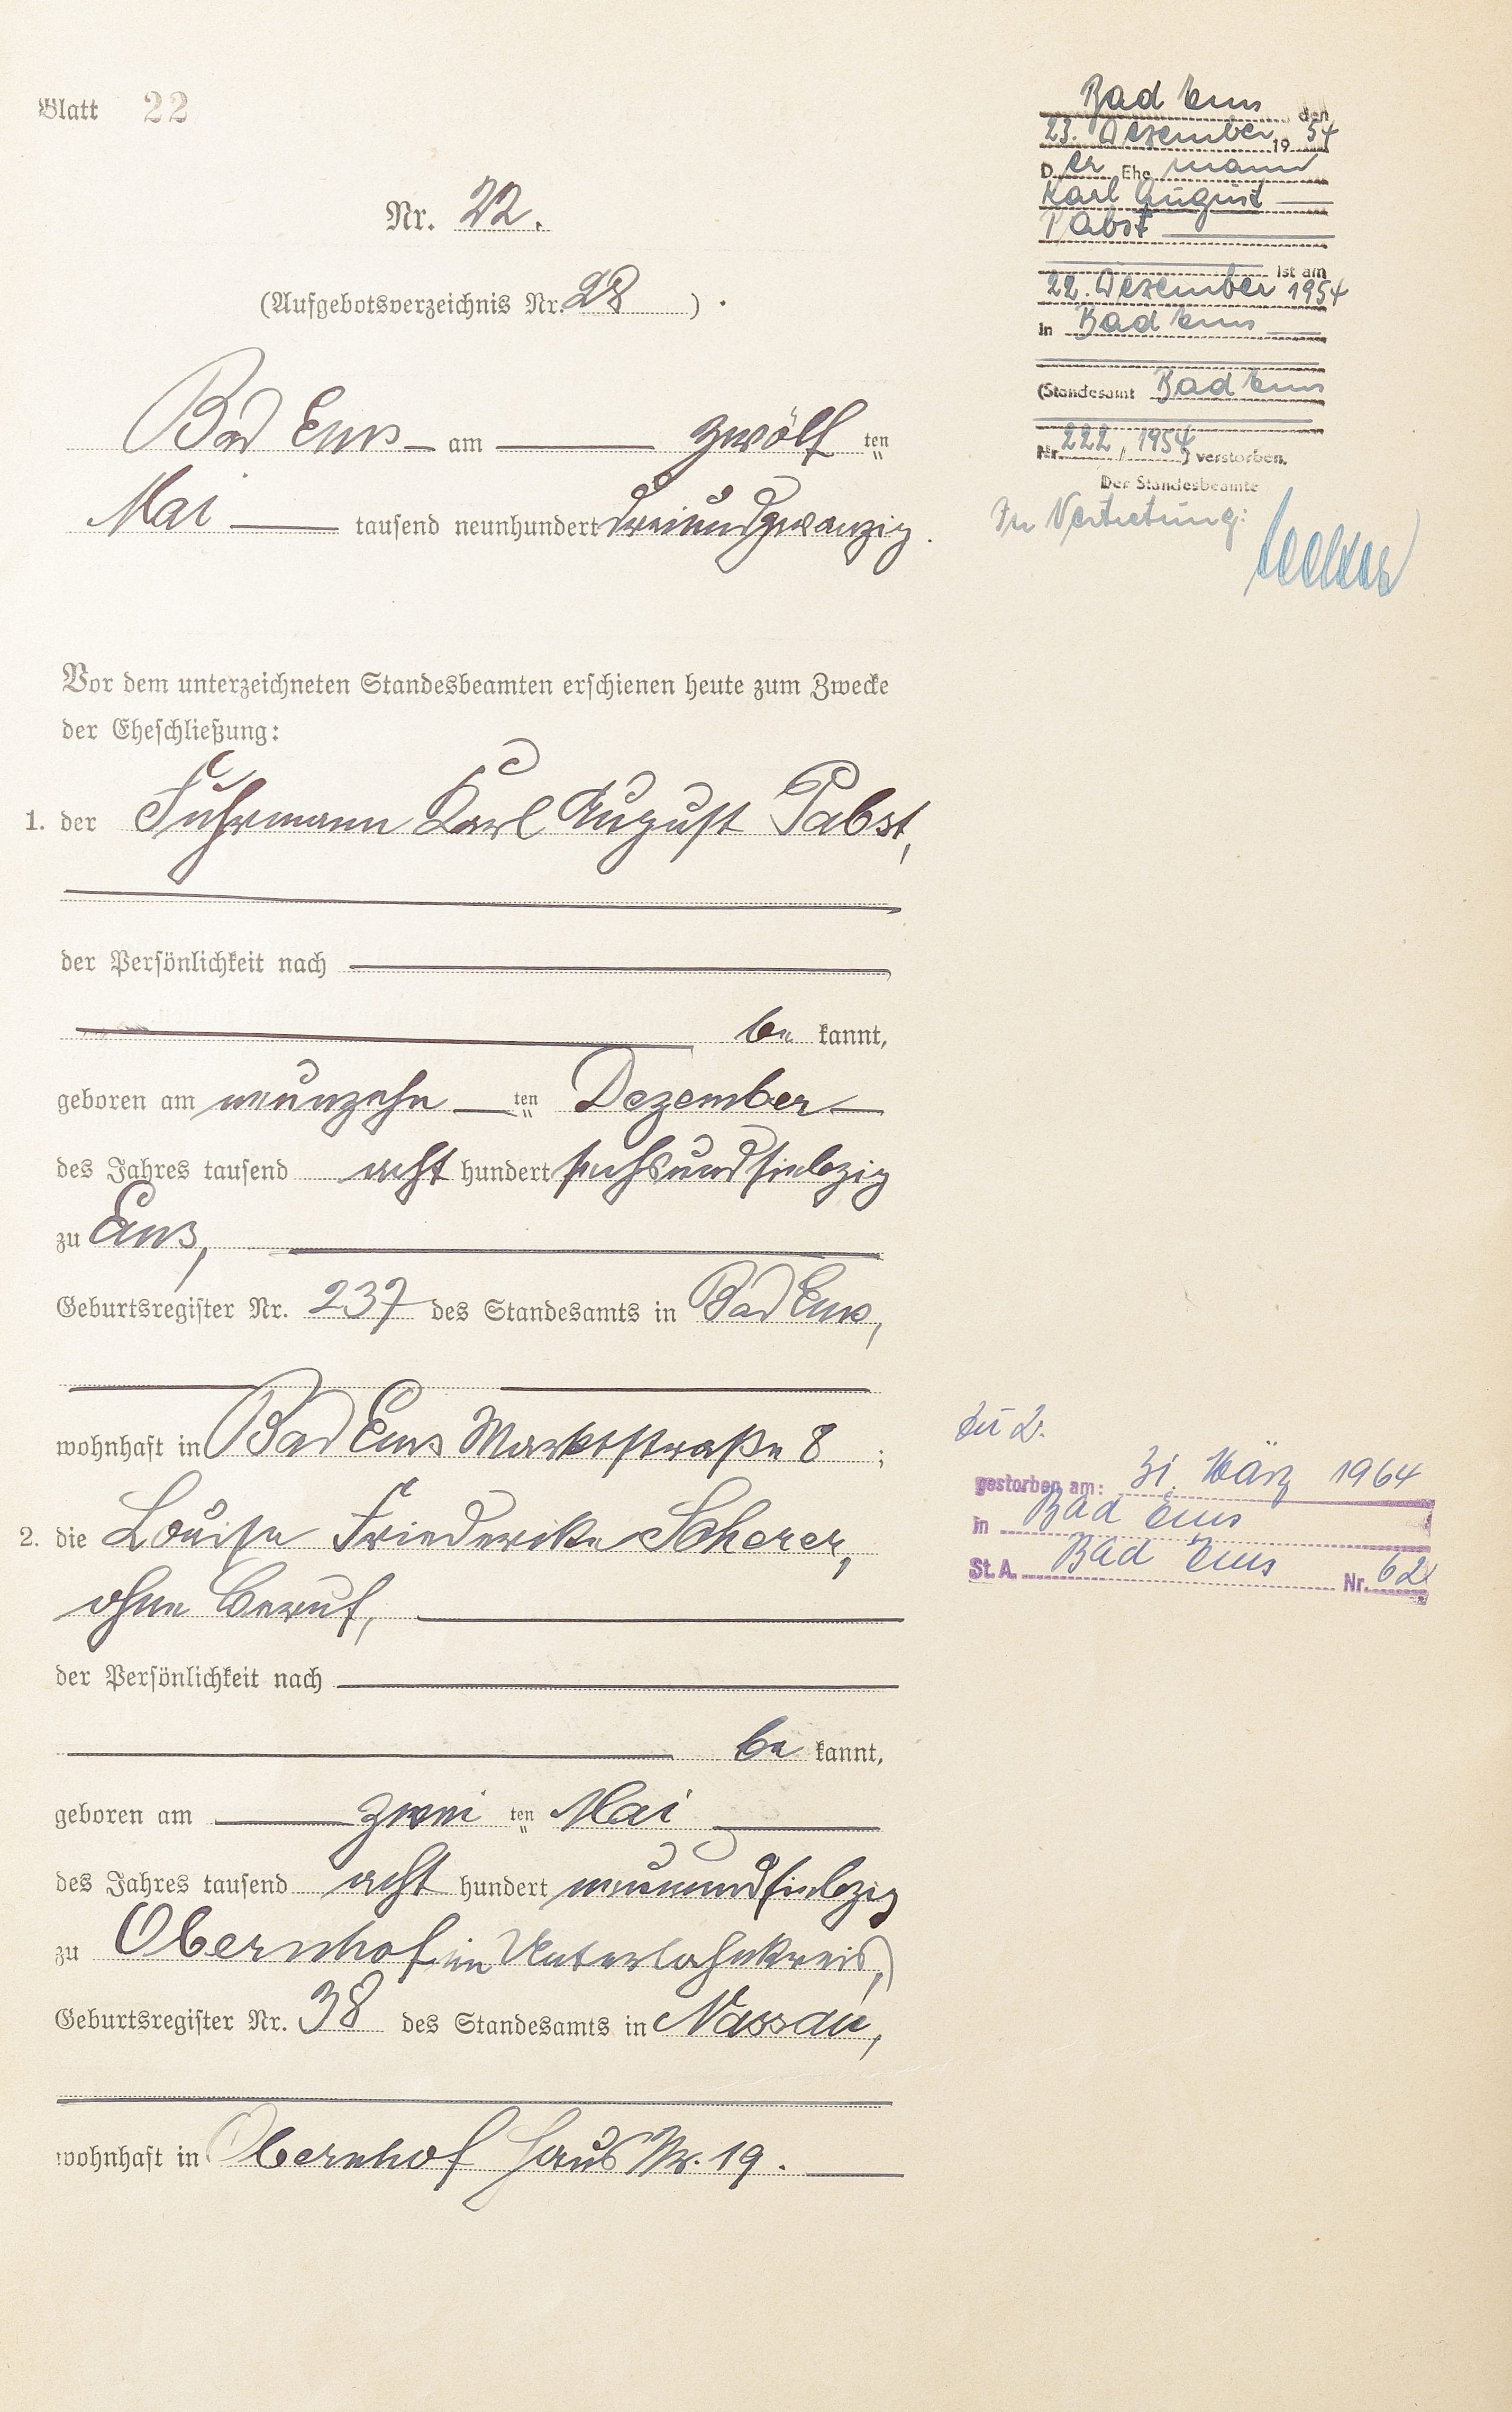 Blatt 22
Nr. 22.
(Aufgebotsverzeichnis Nr. 28)
Bad Ems am zwölf ten
Mai tausend neunhundert dreiundzwanzig.
Vor dem unterzeichneten Standesbeamten erschienen heute zum Zwecke
der Eheschließung:
1. der Fuhrmann Karl August Pabst,
der Persönlichkeit nach
be kannt,
geboren am neunzehn ten Dezember
des Jahres tausend acht hundert sechsundsiebzig
zu Ems,
Geburtsregister Nr. 237 des Standesamts in Bad Ems,
wohnhaft in Bad Ems Marktstraße 8;
2. die Louise Friederike Scherer,
ohne Beruf,
der Persönlichkeit nach
be kannt,
geboren am zwei ten Mai
des Jahres tausend acht hundert neunundsiebzig
zu Obernhof im Unterlahnkreis,
Geburtsregister Nr. 38 des Standesamts in Nassau,
wohnhaft in Obernhof Haus Nr. 19.
Bad Ems den
23. Dezember 19 54
D er Ehe mann
Karl August
Pabst
ist am
22. Dezember 1954
in Bad Ems
(Standesamt Bad Ems
Nr. 222, 1954) verstorben.
Der Standesbeamte
In Vertretung:
Zu 2.
gestorben am: 31. März 1964
in Bad Ems
St. A. Bad Ems Nr. 62